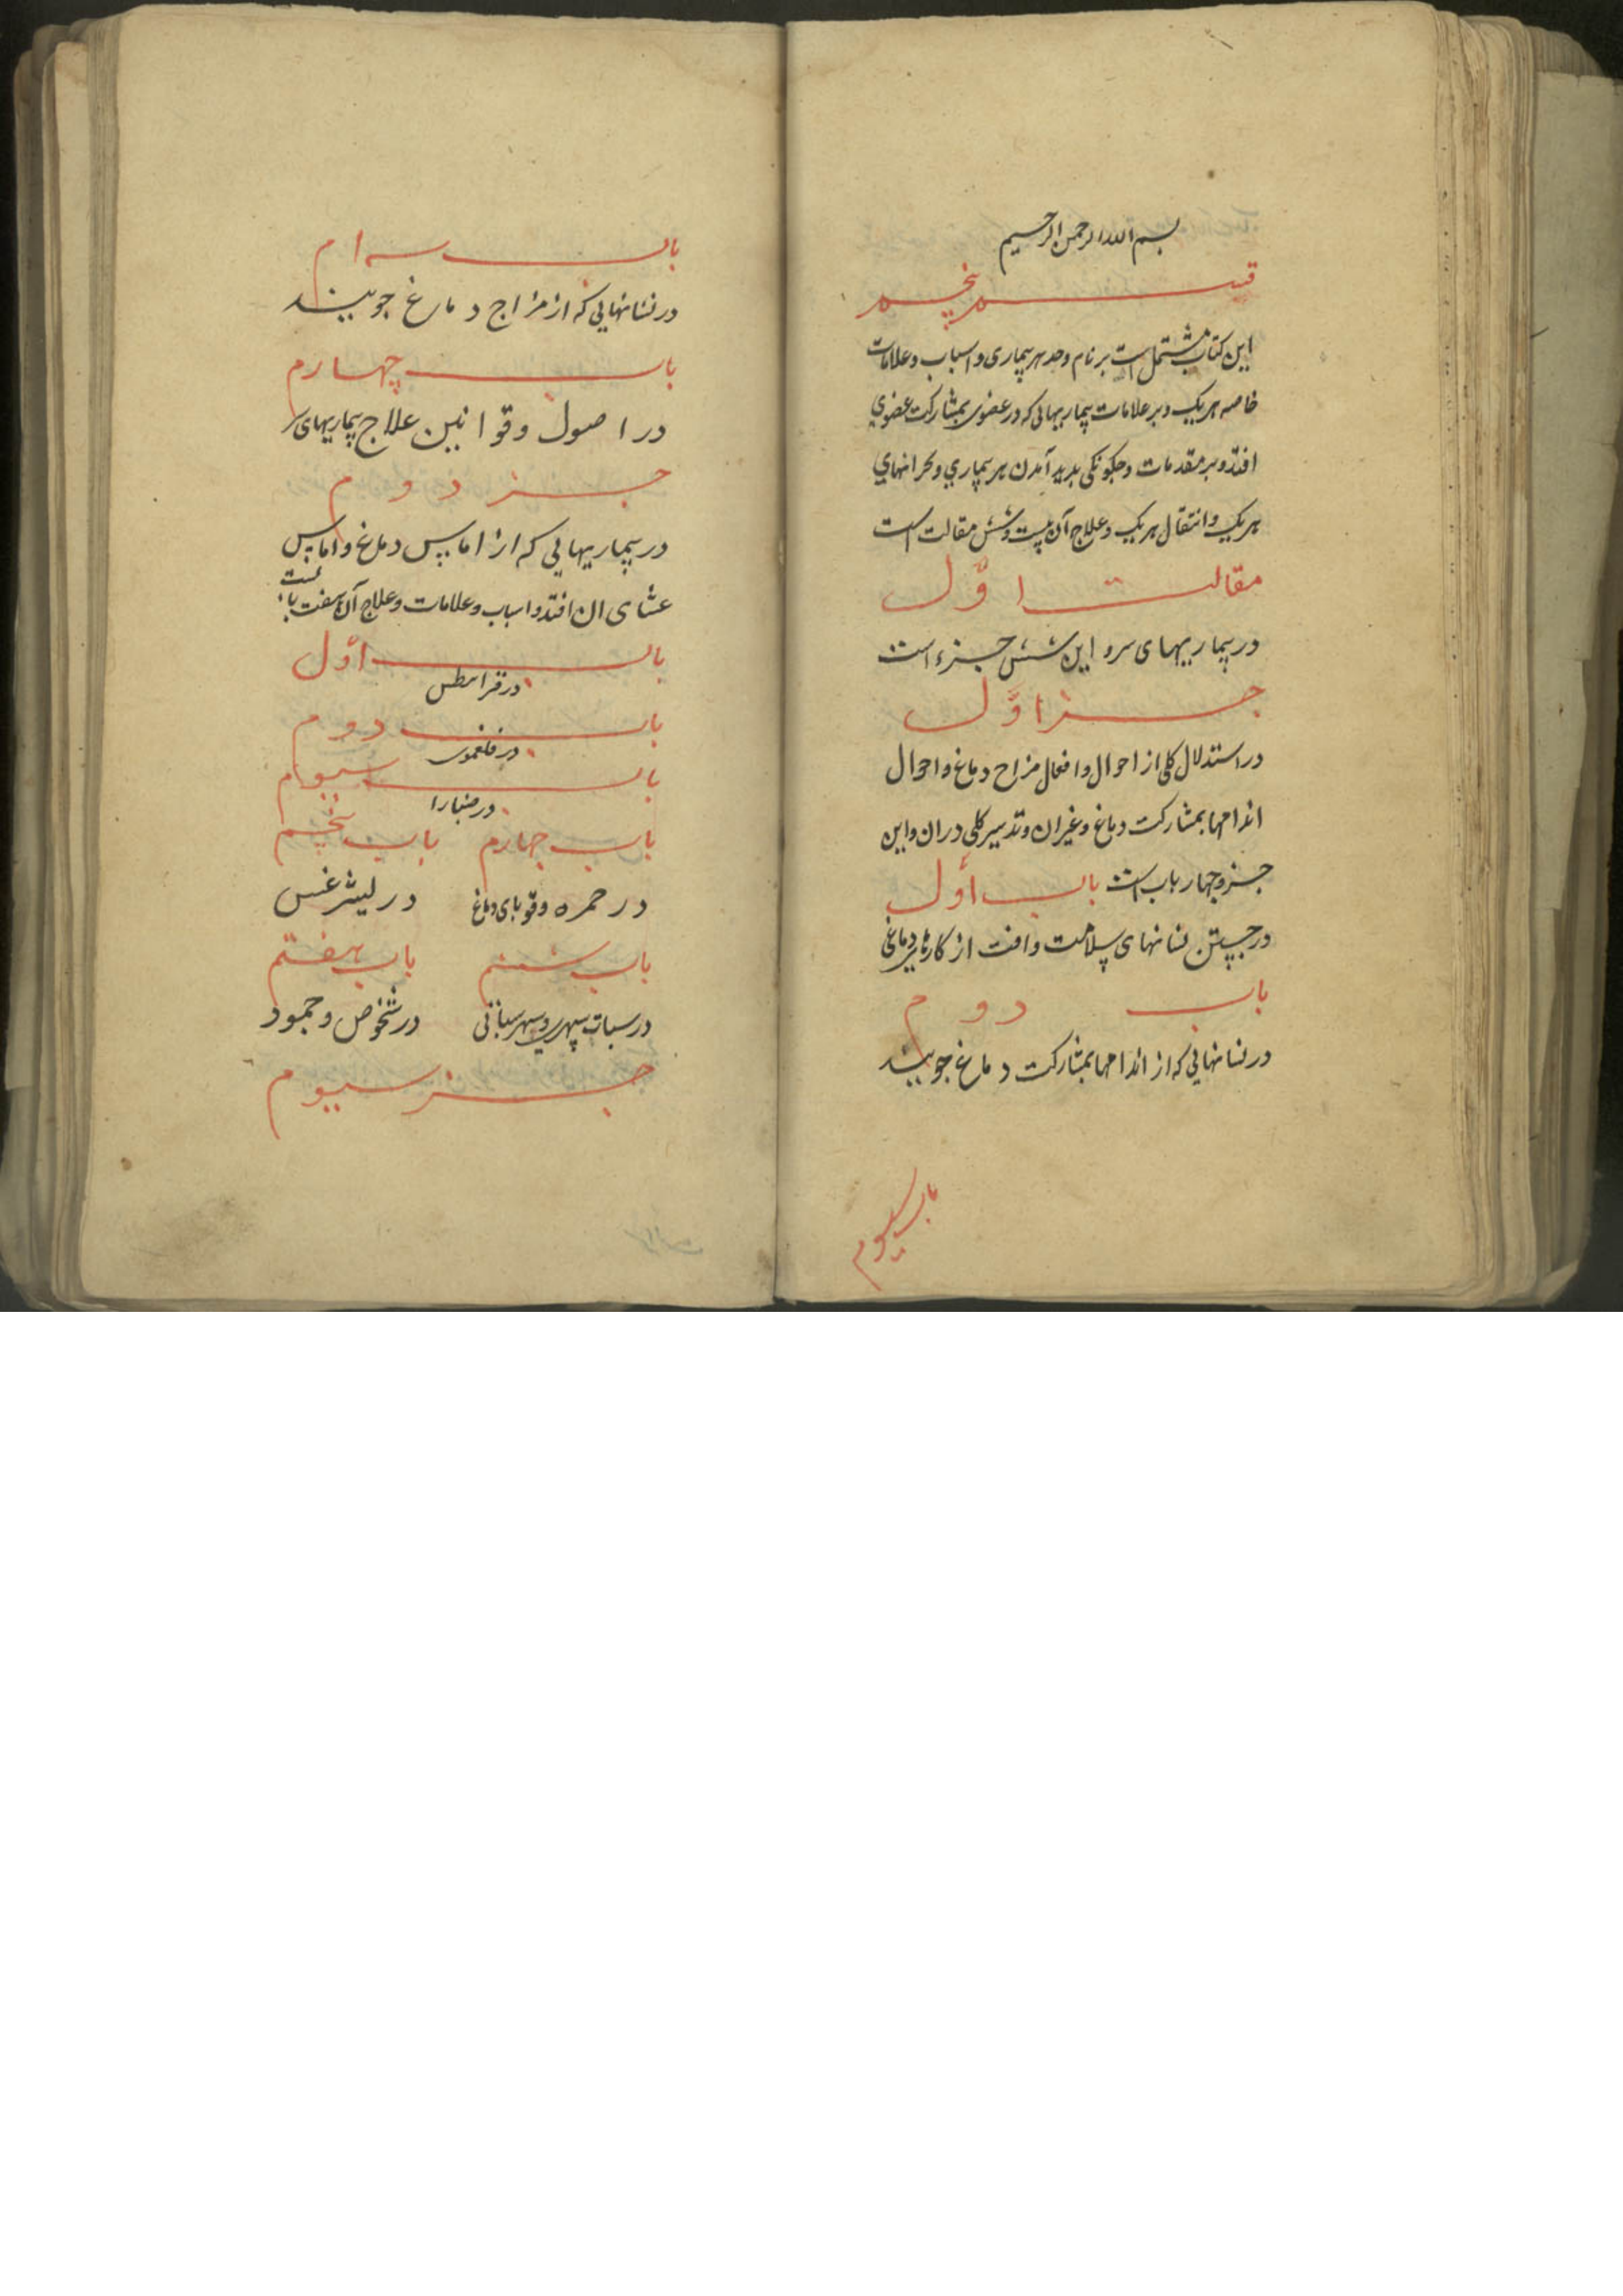 بسم الله الرحمن الرحیم
قسم پنجم
این کتاب مشتمل است بر نام وحد هر بیماری و اسباب و علامات
خاصه هر یک و بر علامات بیماریهایی که در عضوی بمشارکت عضوی
افتد و بر مقدمات و چکونکی بدید آمدن هر بیماری و بحرانهای
هر یک و انتقال هر یک و علاج آن بیست و شش مقالت است
مقالت اوّل
در بیماریهای سر و این شش جزء است
جزء اوّل
در استدلال کلی از احوال و افعال مزاج دماغ و احوال
اندامها بمشارکت دماغ و غیران و تدبیر کلی دران و این
جزو چهار باب است باب أول
در جستن نشانهای سلامت و افت از کارهای دماغی
باب دوم
در نشانهایی که از اندامها بمشارکت دماغ جویند
باب سیوم
باب سه ام
در نشانهایی که از مزاج دماغ جویند
باب چهارم
در اصول و قوانین علاج بیماریهای سر
جزء دوم
در بیماریهایی که از اماس دماغ و اماس
غشای ان افتد و اسباب و علامات و علاج آن هفت باب است
باب أوّل
در قرانیطس
باب دوم
در فلغمونی
باب سیوم
در صبارا
باب چهارم باب پنجم
در حمره و قوبای دماغ در لیثرغس
باب ششم باب هفتم
در سبات سهری و سهر سباتی در شخوص و جمود
جزء سیوم